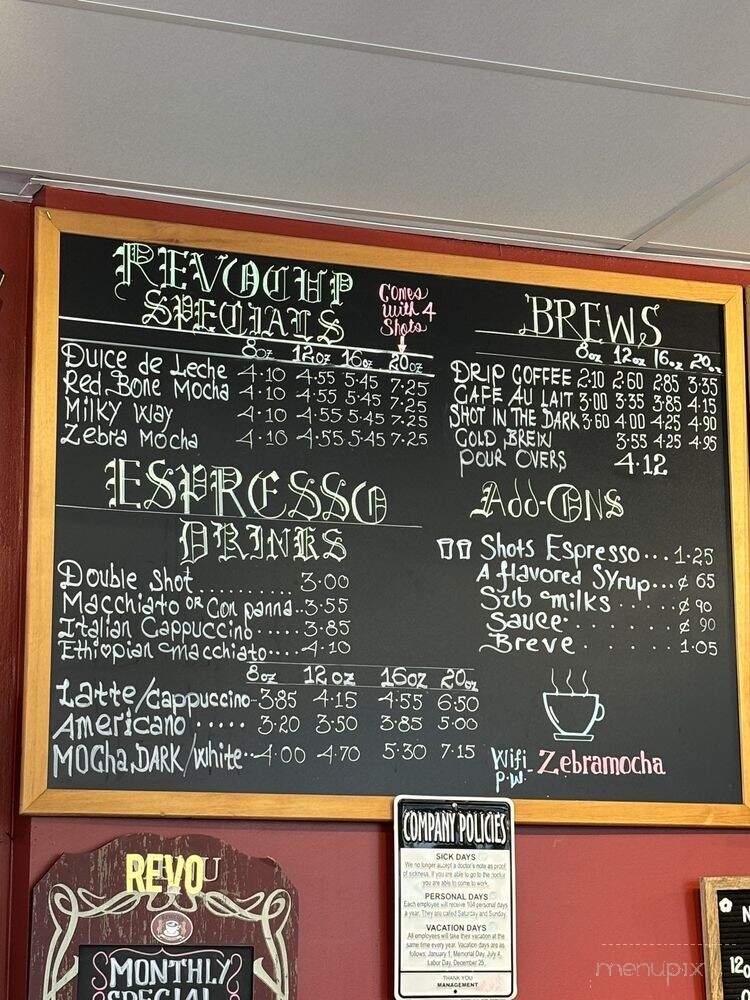 REVOCUP
SPECIALS
Comes
with 4
Shots
8oz 12oz 16oz 20oz
Dulce de Leche 4.10 4.55 5.45 7.25
Red Bone Mocha 4.10 4.55 5.45 7.25
Milky Way 4.10 4.55 5.45 7.25
Zebra Mocha 4.10 4.55 5.45 7.25
ESPRESSO
DRINKS
Double Shot .......... 3.00
Macchiato OR Con panna..3.55
Italian Cappuccino.....3.85
Ethiopian Macchiato....4.10
8oz 12oz 16oz 20oz
Latte/Cappuccino-3.85 4.15 4.55 6.50
Americano ..... 3.20 3.50 3.85 5.00
MOCha,DARK/White..4.00 4.70 5.30 7.15
BREWS
8oz 12oz 16oz 20oz
DRIP COFFEE 2.10 2.60 2.85 3.35
CAFE AU LAIT 3.00 3.35 3.85 4.15
SHOT IN THE DARK 3.60 4.00 4.25 4.90
COLD BREW 3.55 4.25 4.95
POUR OVERS 4.12
Add-ONS
Shots Espresso...1.25
A flavored Syrup...¢ 65
Sub milks ......¢ 90
Sauce.......¢ 90
Breve . . . . . 1.05
Wifi Zebramocha
p.w.
COMPANY POLICIES
SICK DAYS
We no longer accept a doctor's note as proof
of sickness. If you are able to go to the doctor
you are able to come to work.
PERSONAL DAYS
Each employee will receive 104 personal days
a year. They are called Saturday and Sunday.
VACATION DAYS
All employees will take their vacation at the
same time every year. Vacation days are as
follows: January 1, Memorial Day, July 4,
Labor Day, December 25.
THANK YOU
MANAGEMENT
REVO
MONTHLY
SPECIAL
menupix